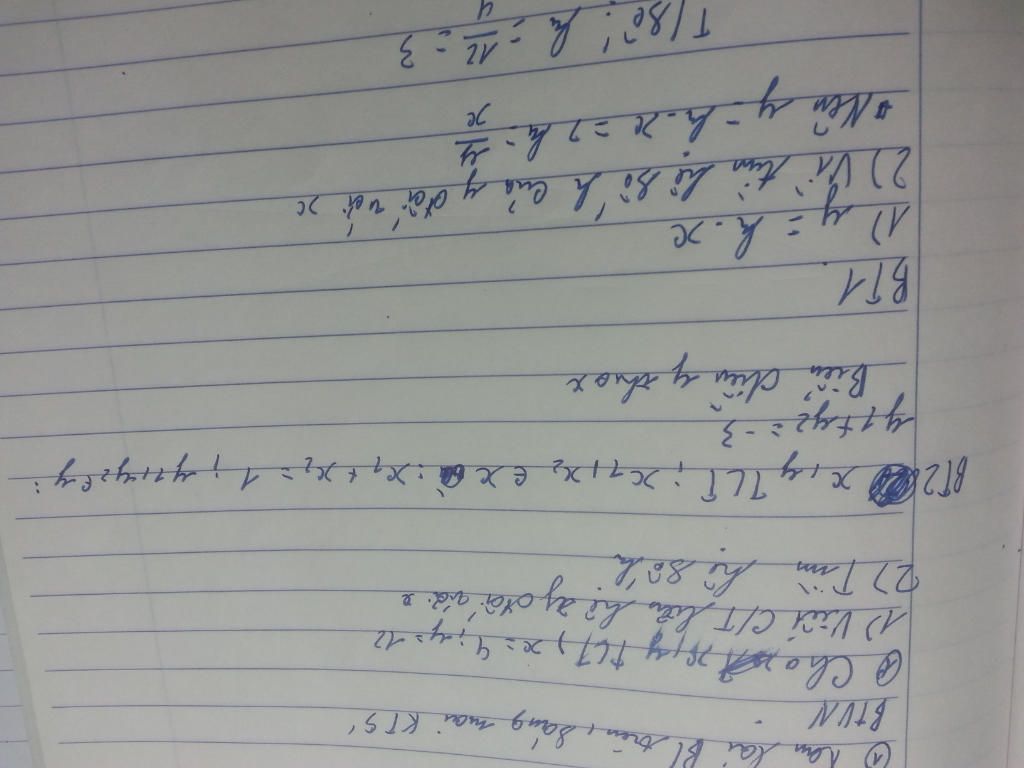 ① Làm lại BT trên, sáng mai KTS'
BTVN
② Cho x, y TLT, x = 4; y = 12
1) Viết C/T liên hệ y đối với x
2) Tìm hệ số k
BT2 x, y TLT; x₁, x₂ ∈ x : x₁ + x₂ = 1; y₁, y₂ ∈ y :
y₁ + y₂ = -3
Biểu diễn y theo x
BT1
1) y = k . x
2) Vì tìm hệ số k của y đối với x
Nên y = k . x => k = y/x
T/số: k = 12/4 = 3